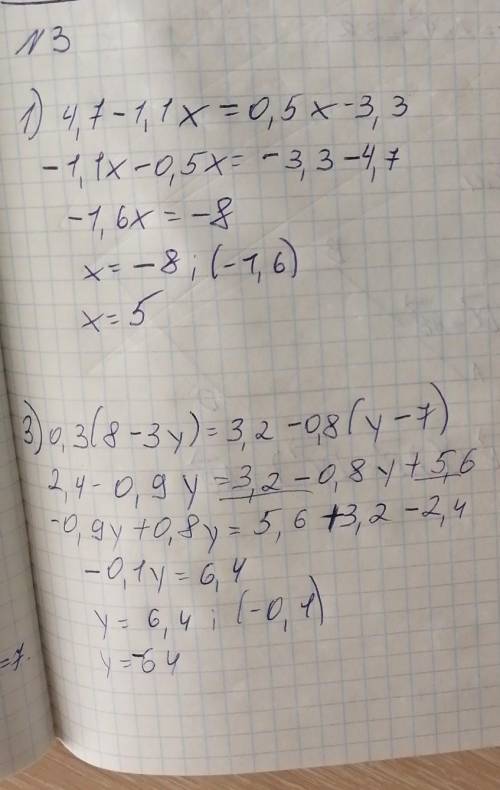 N3
1) 4,7-1,1x=0,5x-3,3
-1,1x-0,5x=-3,3-4,7
-1,6x=-8
x=-8:(-1,6)
x=5
3) 0,3(8-3y)=3,2-0,8(y-7)
2,4-0,9y=3,2-0,8y+5,6
-0,9y+0,8y=5,6+3,2-2,4
-0,1y=6,4
y=6,4:(-0,1)
=7.
y=-64